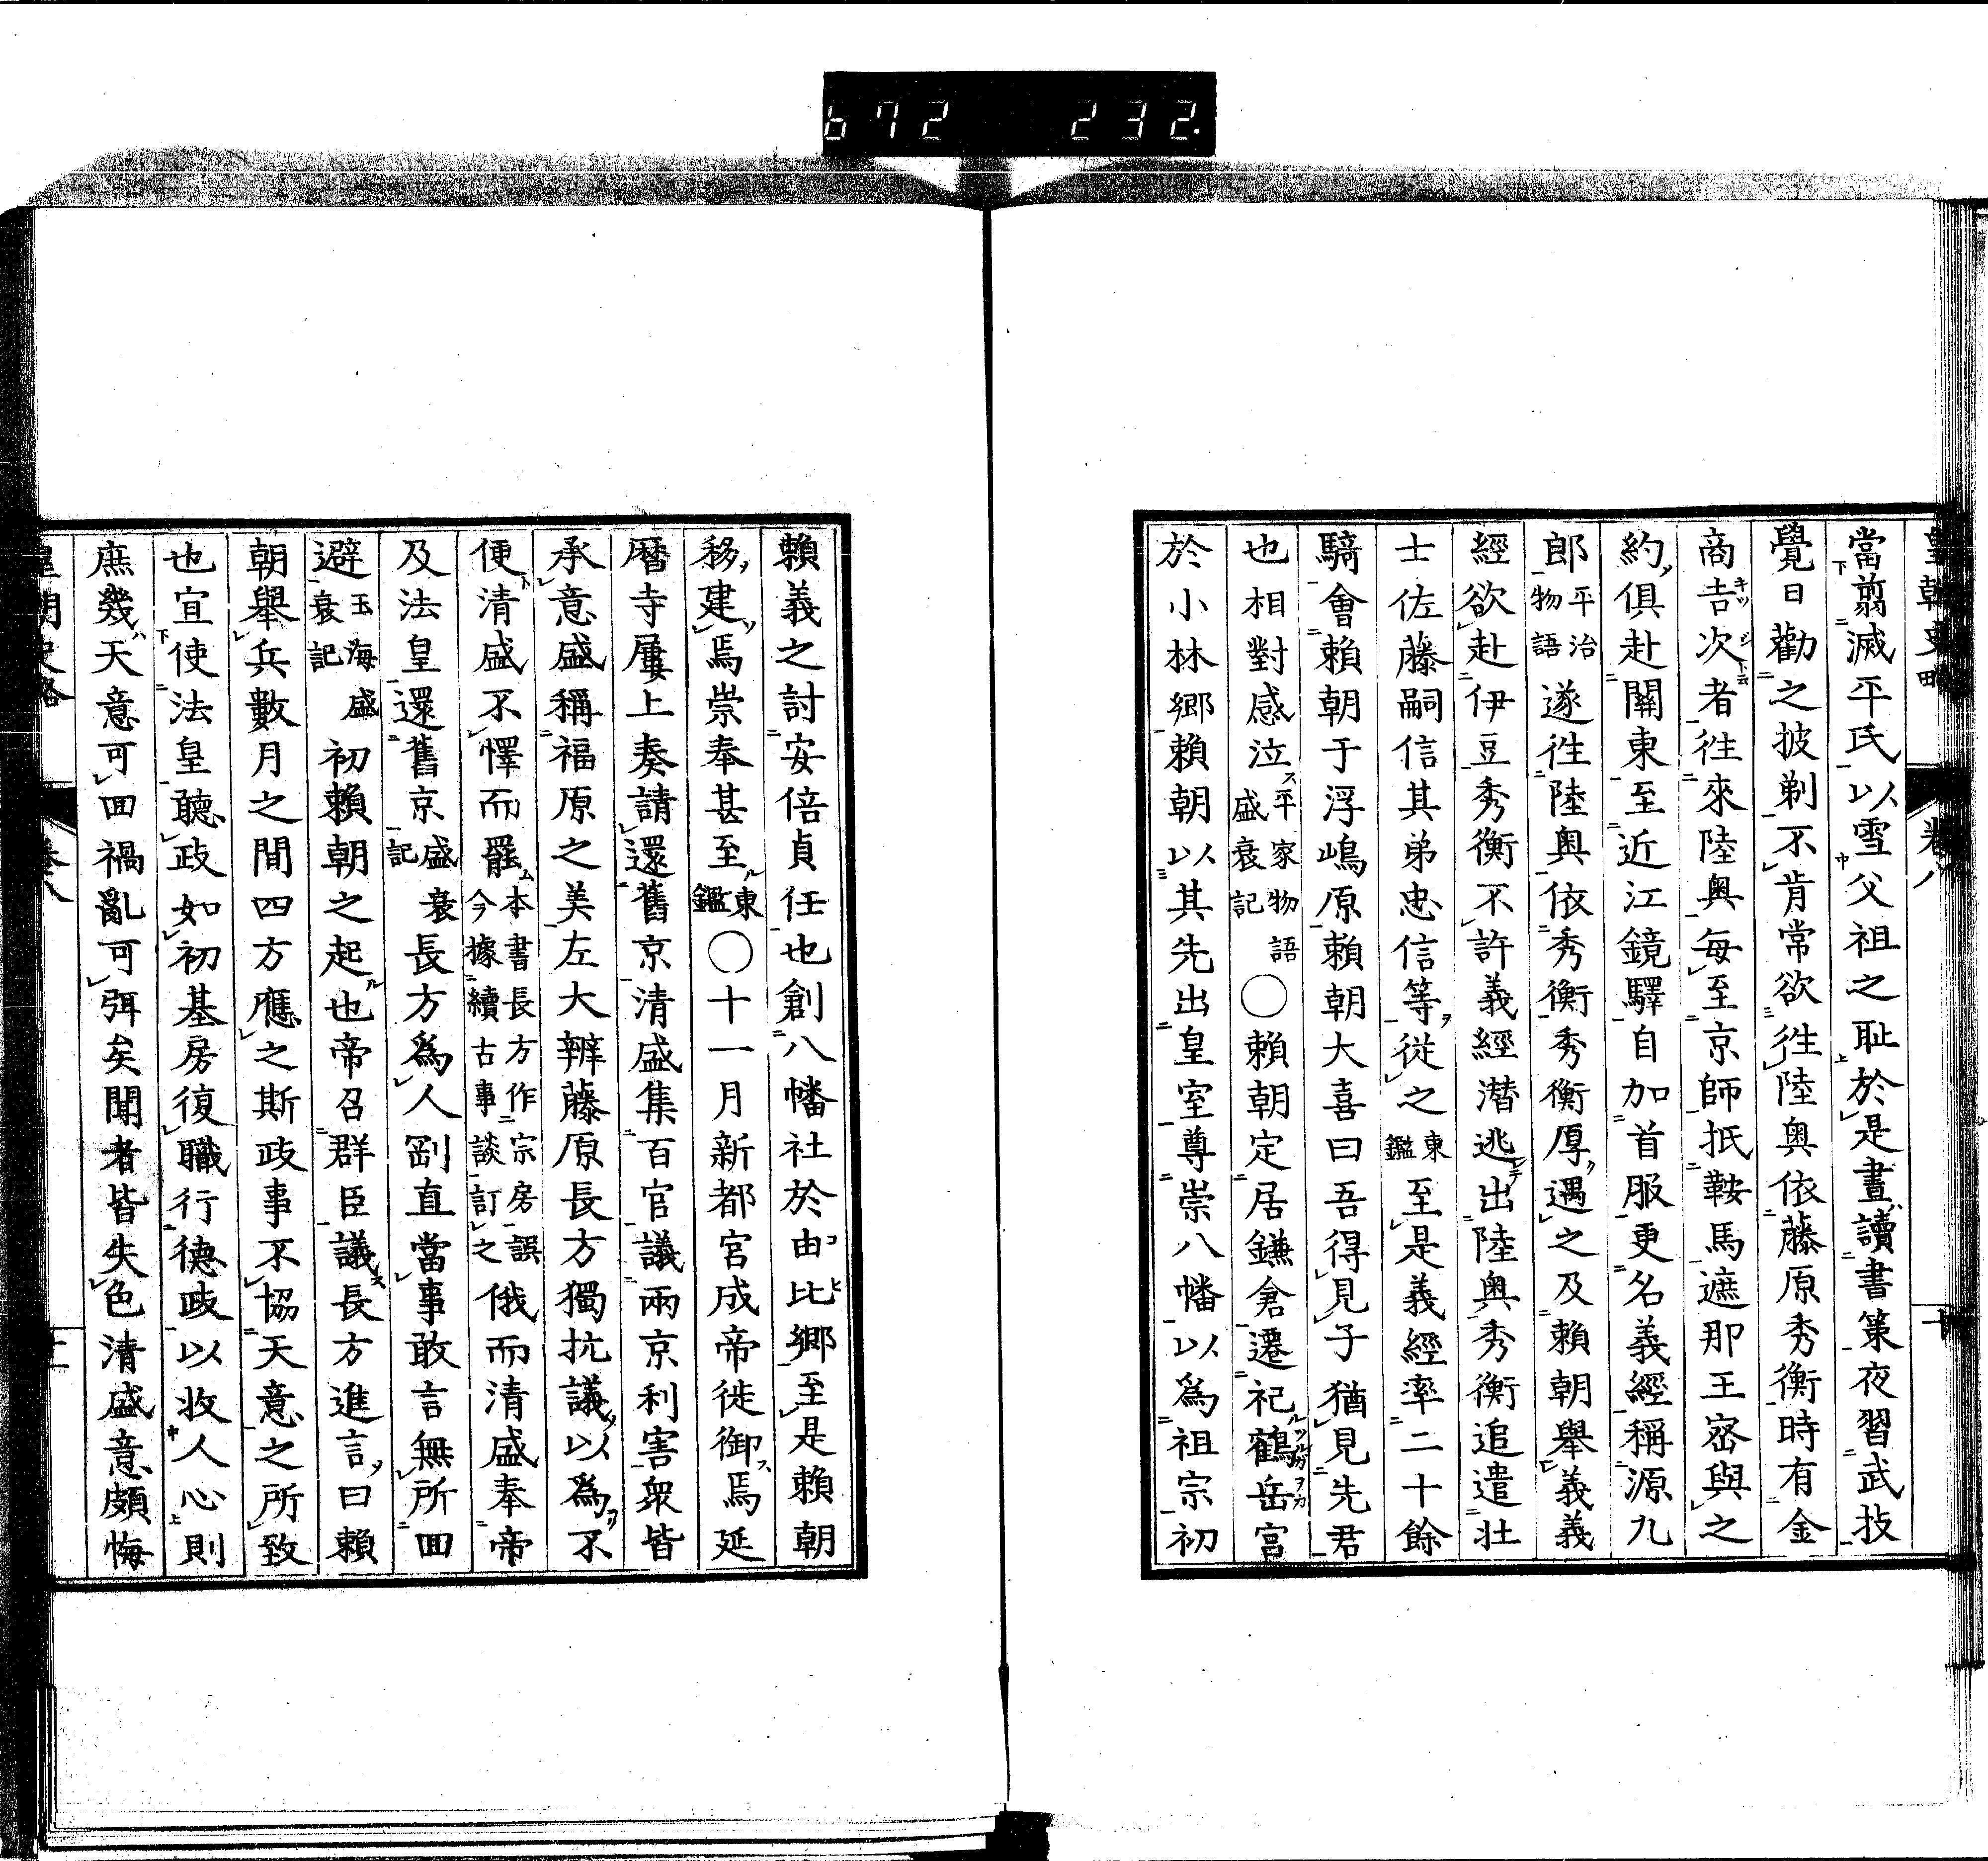 672 232.
皇朝史略 卷八 十
當翦滅平氏以雪父祖之恥於是晝讀書策夜習武技
覺日勸之披剃不肯常欲往陸奧依藤原秀衡時有金
商吉次者往來陸奧每至京師抵鞍馬遮那王密與之
約俱赴關東至近江鏡驛自加首服更名義經稱源九
郎平治物語遂往陸奧依秀衡秀衡厚遇之及賴朝舉義義
經欲赴伊豆秀衡不許義經潛逃出陸奧秀衡追遣壯
士佐藤嗣信其弟忠信等從之東鑑至是義經率二十餘
騎會賴朝于浮嶋原賴朝大喜曰吾得見子猶見先君
也相對感泣平家物語盛衰記○賴朝定居鎌倉遷祀鶴岳宮
於小林鄉賴朝以其先出皇室尊崇八幡以爲祖宗初
賴義之討安倍貞任也創八幡社於由比鄉至是賴朝
移建焉崇奉甚至東鑑○十一月新都宮成帝徙御焉延
曆寺屢上奏請還舊京清盛集百官議兩京利害衆皆
承意盛稱福原之美左大辨藤原長方獨抗議以爲不
便清盛不懌而罷本書長方作宗房誤今據續古事談訂之俄而清盛奉帝
及法皇還舊京盛衰記長方爲人剛直當事敢言無所回
避玉海盛衰記初賴朝之起也帝召群臣議長方進言曰賴
朝舉兵數月之間四方應之斯政事不協天意之所致
也宜使法皇聽政如初基房復職行德政以收人心則
庶幾天意可回禍亂可弭矣聞者皆失色清盛意頗悔
皇朝史略 卷八